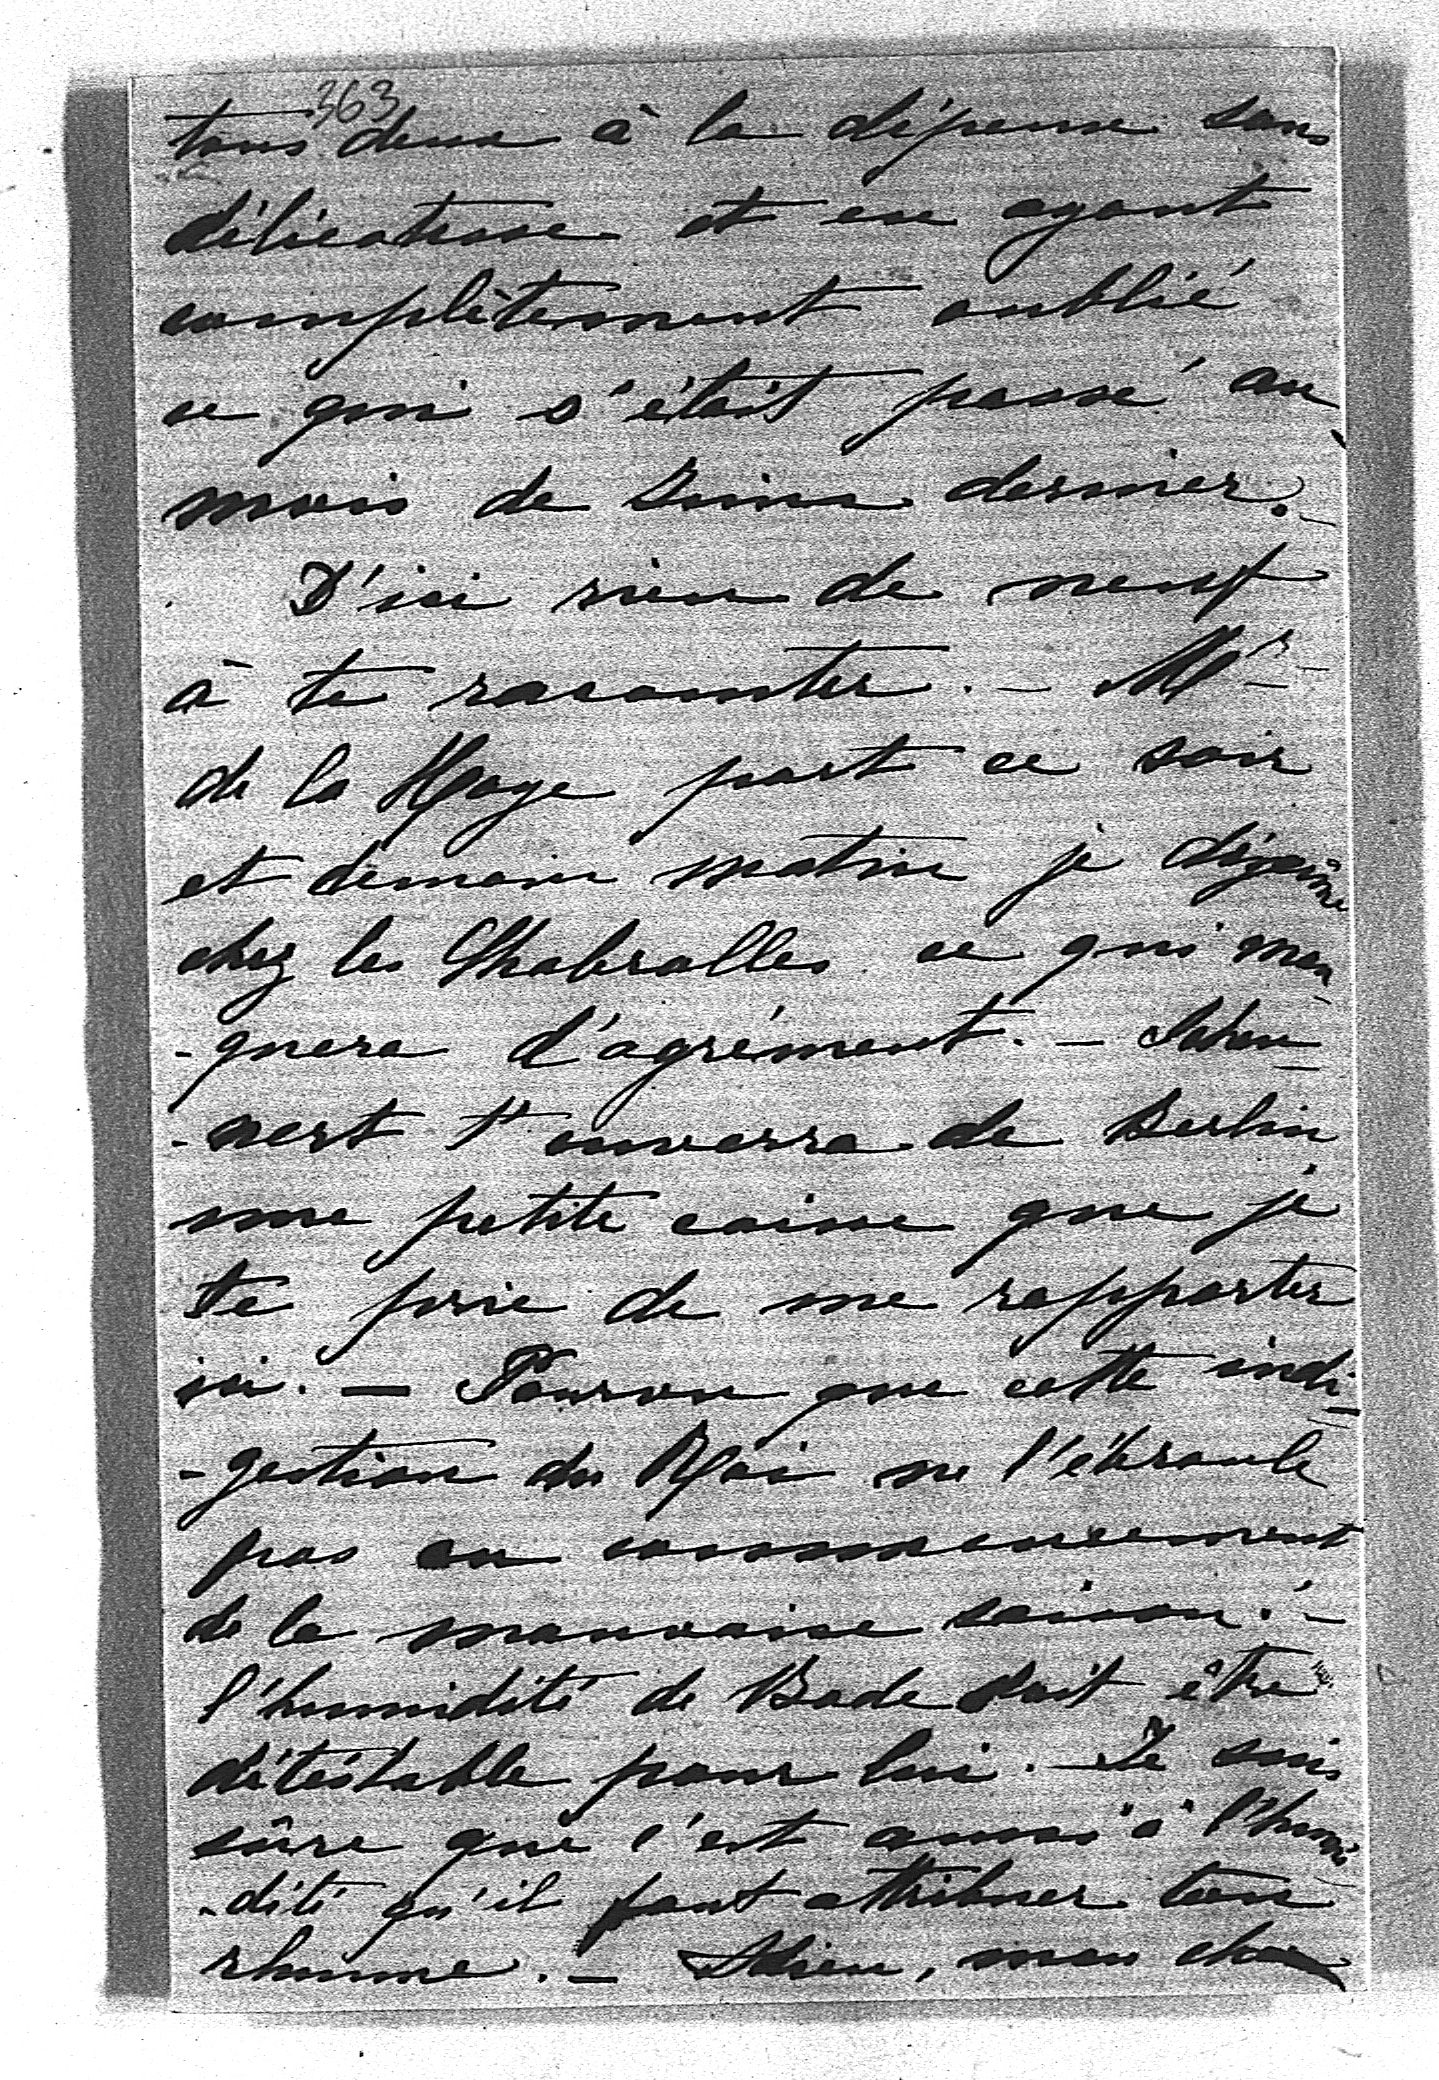 363
tous deux à la dépense sans
délicatesse et en ayant
complètement oublié
ce qui s'était passé au
mois de Juin dernier.
D'ici rien de neuf
à te raconter. – Mr
de la Haye part ce soir
et demain matin je déjeûne
chez les Chabrolles ce qui man-
-quera d'agrément. –
-nert t'enverra de Berlin
une petite caisse que je
te prie de me rapporter
ici. – Pourvu que cette indi-
-gestion du Roi ne l'ébranle
pas au commencement
de la mauvaise saison! –
l'humidité de Bade doit être
détestable pour lui. – Je suis
sûre que c'est aussi à l'humi-
-dité qu'il faut attribuer ton
rhume. – Adieu, mon cher